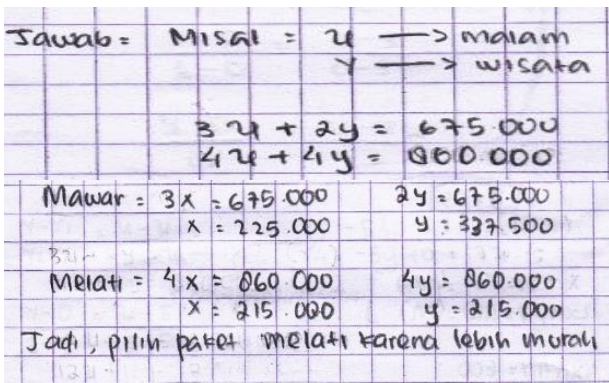 Jawab = Misal = x → malam
y → wisata
3x + 2y = 675.000
4x + 4y = 860.000
Mawar = 3x = 675.000 2y = 675.000
x = 225.000 y = 337.500
Melati = 4x = 860.000 4y = 860.000
x = 215.000 y = 215.000
Jadi, pilih paket melati karena lebih murah